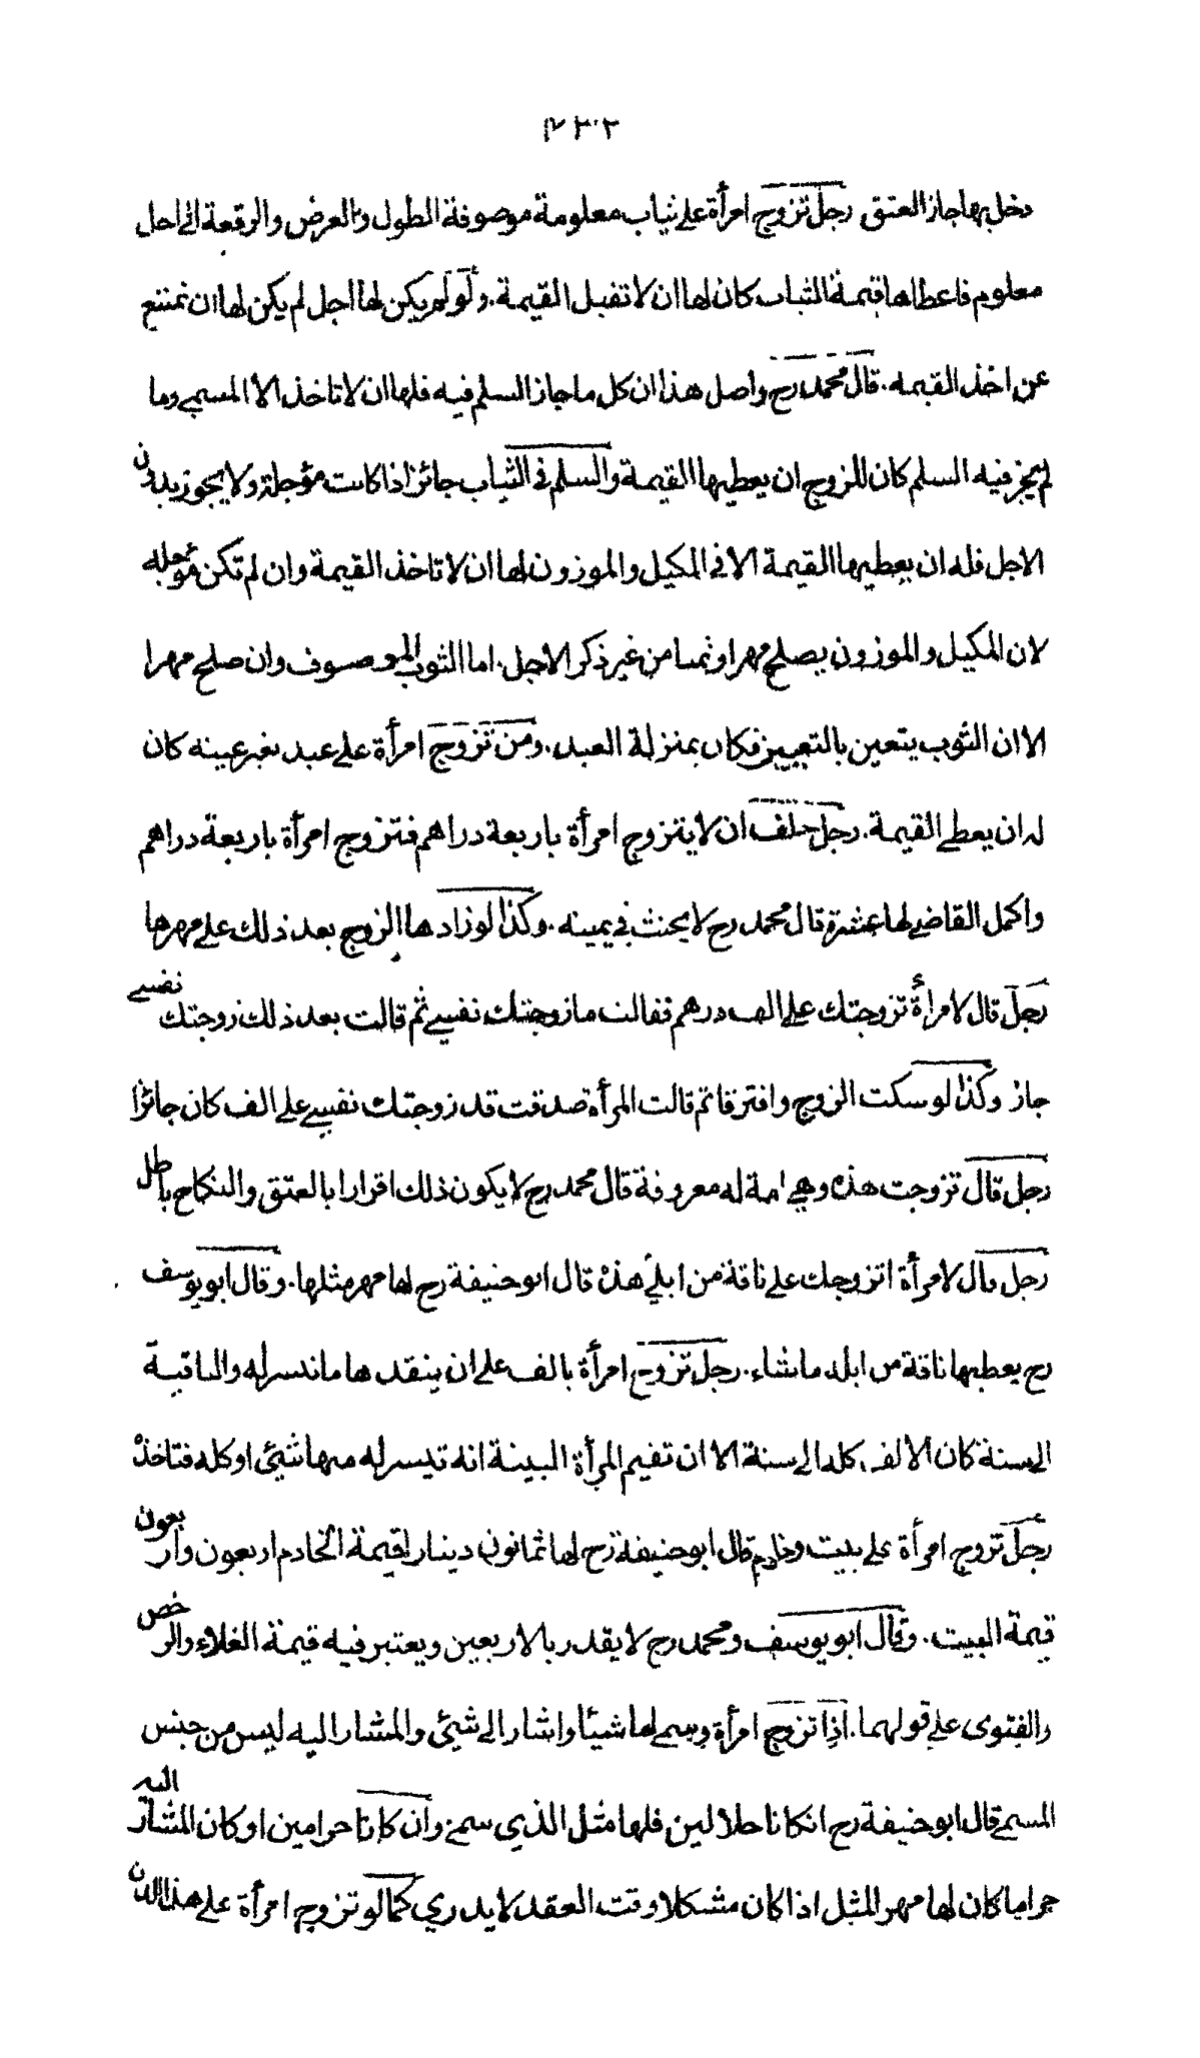 دخل بها جاز العتق رجل تزوج امرأة على ثياب معلومة موصوفة الطول والعرض والرقعة الى اجل
معلوم فاعطاها قيمة الثياب كان لها ان لا تقبل القيمة. ولو لم يكن لها اجل لم يكن لها ان تمتنع
عن اخذ القيمه. قال محمد رح واصل هذا ان كل ما جاز السلم فيه فلها ان لا تاخذ الا المسمى وما
لم يجز فيه السلم كان للزوج ان يعطيها القيمة والسلم فى الثياب جائز اذا كانت مؤجلة ولا يجوز بدون
الاجل فله ان يعطيها القيمة الا فى المكيل والموزون لها ان لا تاخذ القيمة وان لم تكن مؤجله
لان المكيل والموزون يصلح مهرا وثمنا من غير ذكر الاجل. اما الثوب الموصوف وان صلح مهرا
الا ان الثوب يتعين بالتعيين فكان بمنزلة العبد. ومن تزوج امرأة على عبد بغير عينه كان
له ان يعطى القيمة. رجل حلف ان لا يتزوج امرأة باربعة دراهم فتزوج امرأة باربعة دراهم
واكمل القاضى لها عشرة قال محمد رح لا يحنث فى يمينه. وكذا لو زادها الزوج بعد ذلك على مهرها
رجل قال لامرأة تزوجتك على الف درهم فقالت ما زوجتك نفسى ثم قالت بعد ذلك زوجتك نفسى
جاز وكذا لو سكت الزوج وافترقا ثم قالت المرأة صدقت قد زوجتك نفسى على الف كان جائزا
رجل قال تزوجت هذه وهى امة له معروفة قال محمد رح لا يكون ذلك اقرارا بالعتق والنكاح باطل
رجل قال لامرأة اتزوجك على ناقة من ابلى هذه قال ابو حنيفة رح لها مهر مثلها. وقال ابو يوسف
رح يعطيها ناقة من ابله ما شاء. رجل تزوج امرأة بالف على ان ينقدها ما تيسر له والباقية
الى سنة كان الالف كله الى سنة الا ان تقيم المرأة البينة انه تيسر له منها شيئ او كله فتاخذه
رجل تزوج امرأة على بيت وخادم قال ابو حنيفة رح لها ثمانون دينارا قيمة الخادم اربعون واربعون
قيمة البيت. وقال ابو يوسف ومحمد رح لا يقدر بالاربعين ويعتبر فيه قيمة الغلاء والرخص
والفتوى على قولهما. اذا تزوج امرأة وسمى لها شيئا واشار الى شيئ والمشار اليه ليس من جنس
المسمى قال ابو حنيفة رح ان كانا حلالين فلها مثل الذي سمى وان كانا حرامين او كان المشار اليه
حراما كان لها مهر المثل اذا كان مشكلا وقت العقد لا يدري كما لو تزوج امرأة على هذا الدن